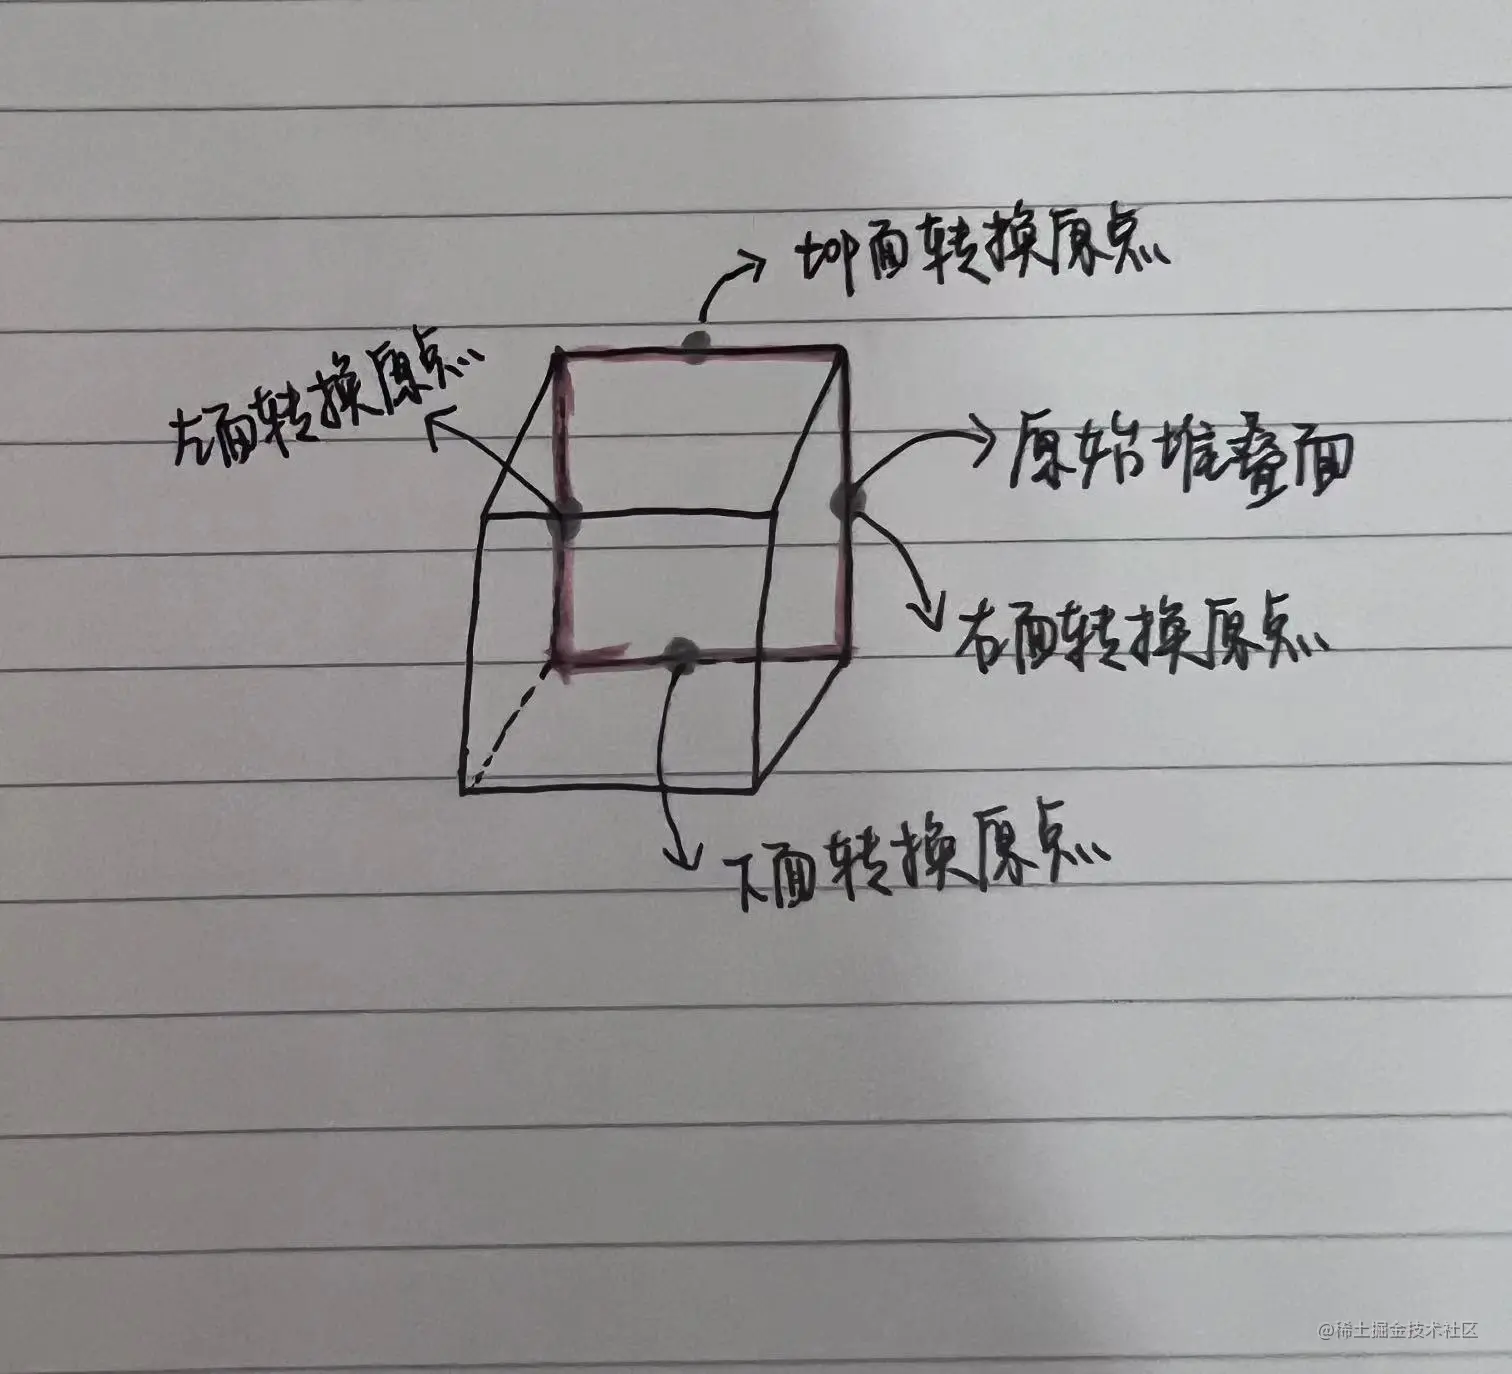 top面转换原点
左面转换原点
原始堆叠面
右面转换原点
下面转换原点
@稀土掘金技术社区